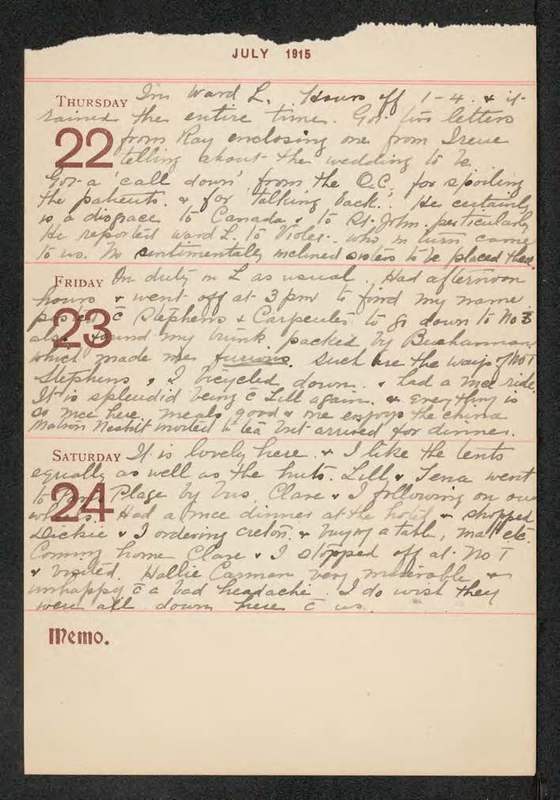 JULY 1915
THURSDAY 22 In Ward L. Hours off 1-4. & it
rained the entire time. Got two letters
from Ray enclosing one from Irene
telling about the wedding to be.
Got a 'call down' from the O.C. for spoiling
the patients. & for talking back. He certainly
is a disgrace to Canada & to St. John particularly
He reported ward L. to Violet. who in turn came
to us. No sentimentally inclined sisters to be placed there.
FRIDAY 23 On duty in L as usual. Had afternoon
hours & went off at 3 pm to find my name
posted c̄ Stephens & Carpenter to go down to No 3
also found my trunk packed by Buchanan
which made me furious. Such are the ways of No 1
Stephens & I bicycled down. & had a nice ride.
It is splendid being c̄ Lill again. & everything is
so nice here. meals good & one enjoys the china
Matron Nesbit invited to tea but arrived for dinner.
SATURDAY 24 It is lovely here. & I like the tents
equally as well as the huts. Lill & Tena went
to Plage by bus. Clare & I following on our
wheels. Had a nice dinner at the hotel & shopped
Dickie & I ordering creton. & buying a table, mat etc.
Coming home Clare & I stopped off at No 1
& visited. Hallie Carman very miserable &
unhappy c̄ a bad headache. I do wish they
were all down here c̄ us.
Memo.